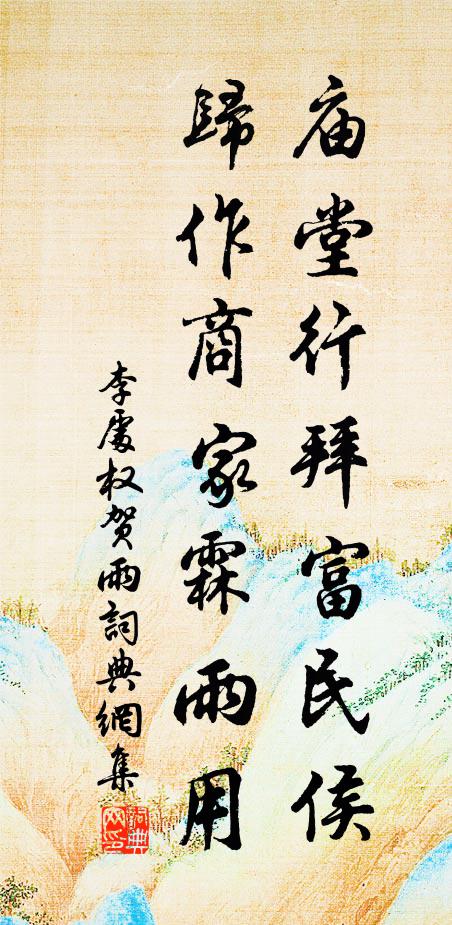 庙堂行拜富民侯
歸作商家霖雨用
李處权贺雨詞典網集
詞典网印